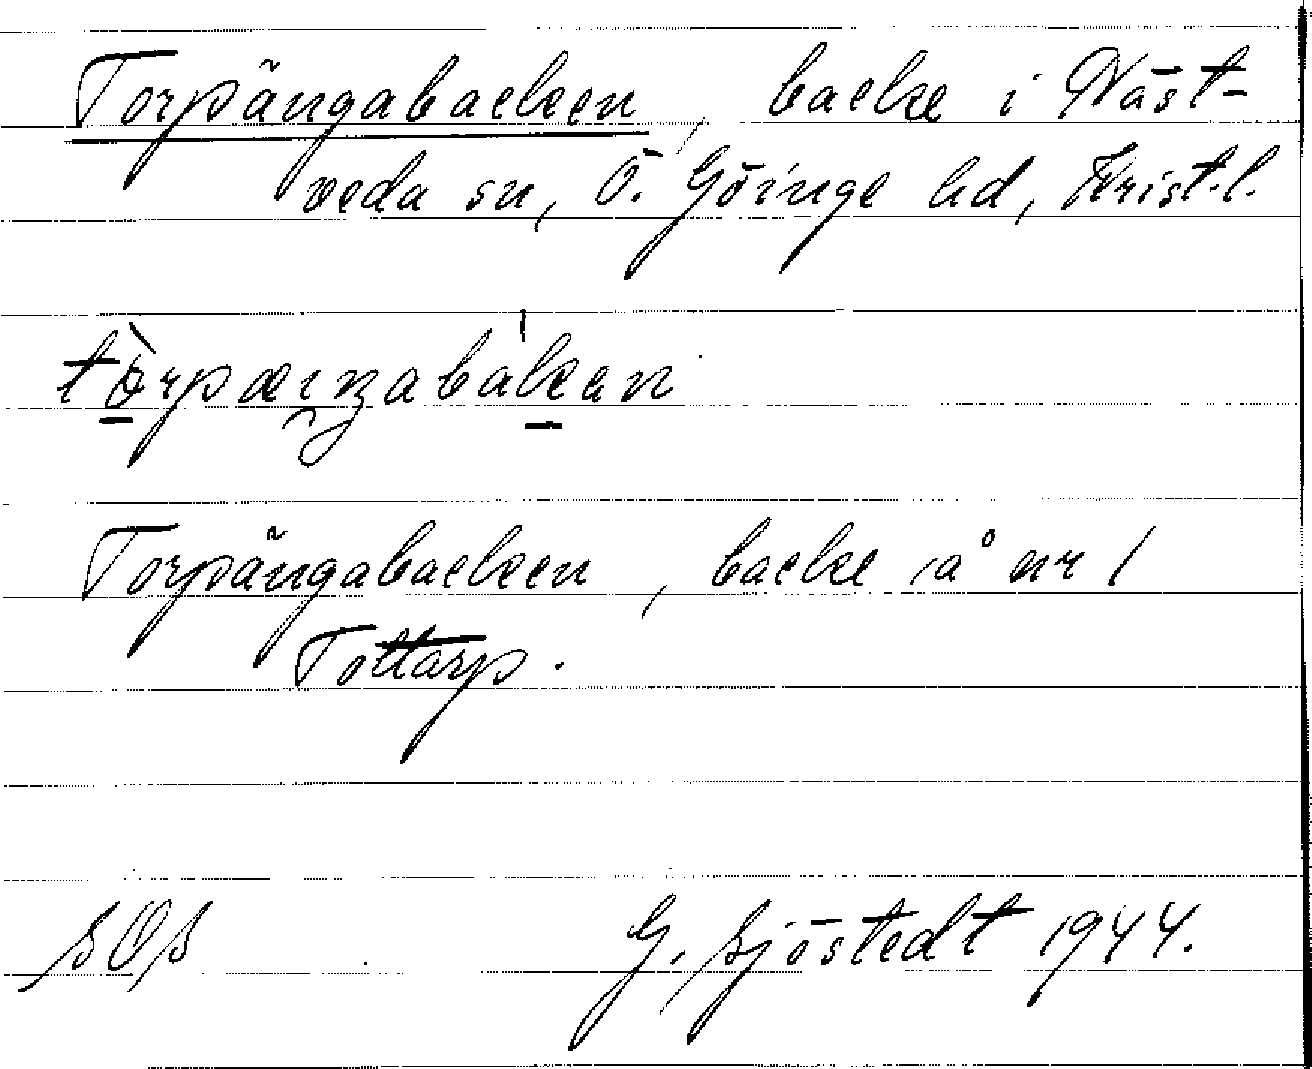 Torpängabacken, backe i Näst-
veda sn, Ö. Göinge hd, Krist.l.
Torpängabacken, backe på nr 1
Tottarp.
SOS G. Sjöstedt 1944.